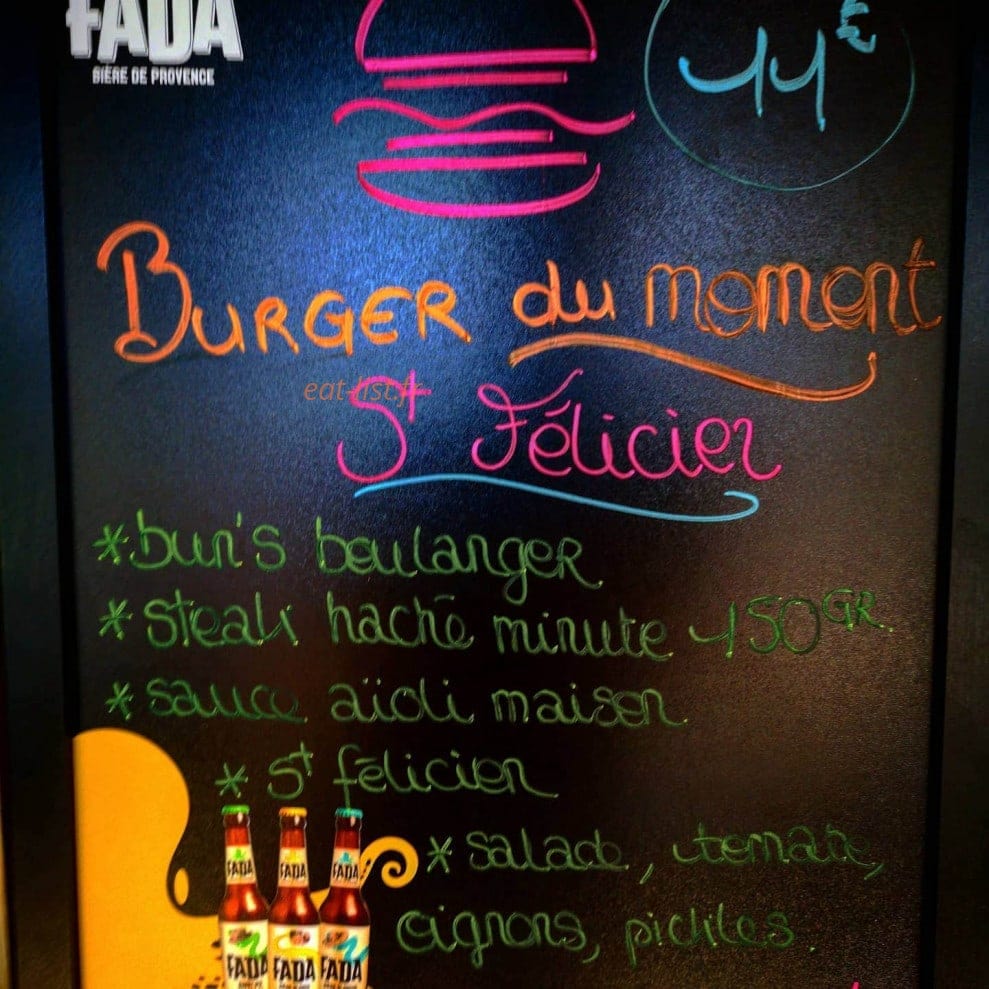 FADA
BIÈRE DE PROVENCE
11€
BURGER du moment
eat-list.fr
St Félicien
*bun's boulanger
*steak haché minute 150GR
*sauce aïoli maison
*St félicien
*salade, tomate,
oignons, pickles
FADA FADA FADA
FADA FADA FADA